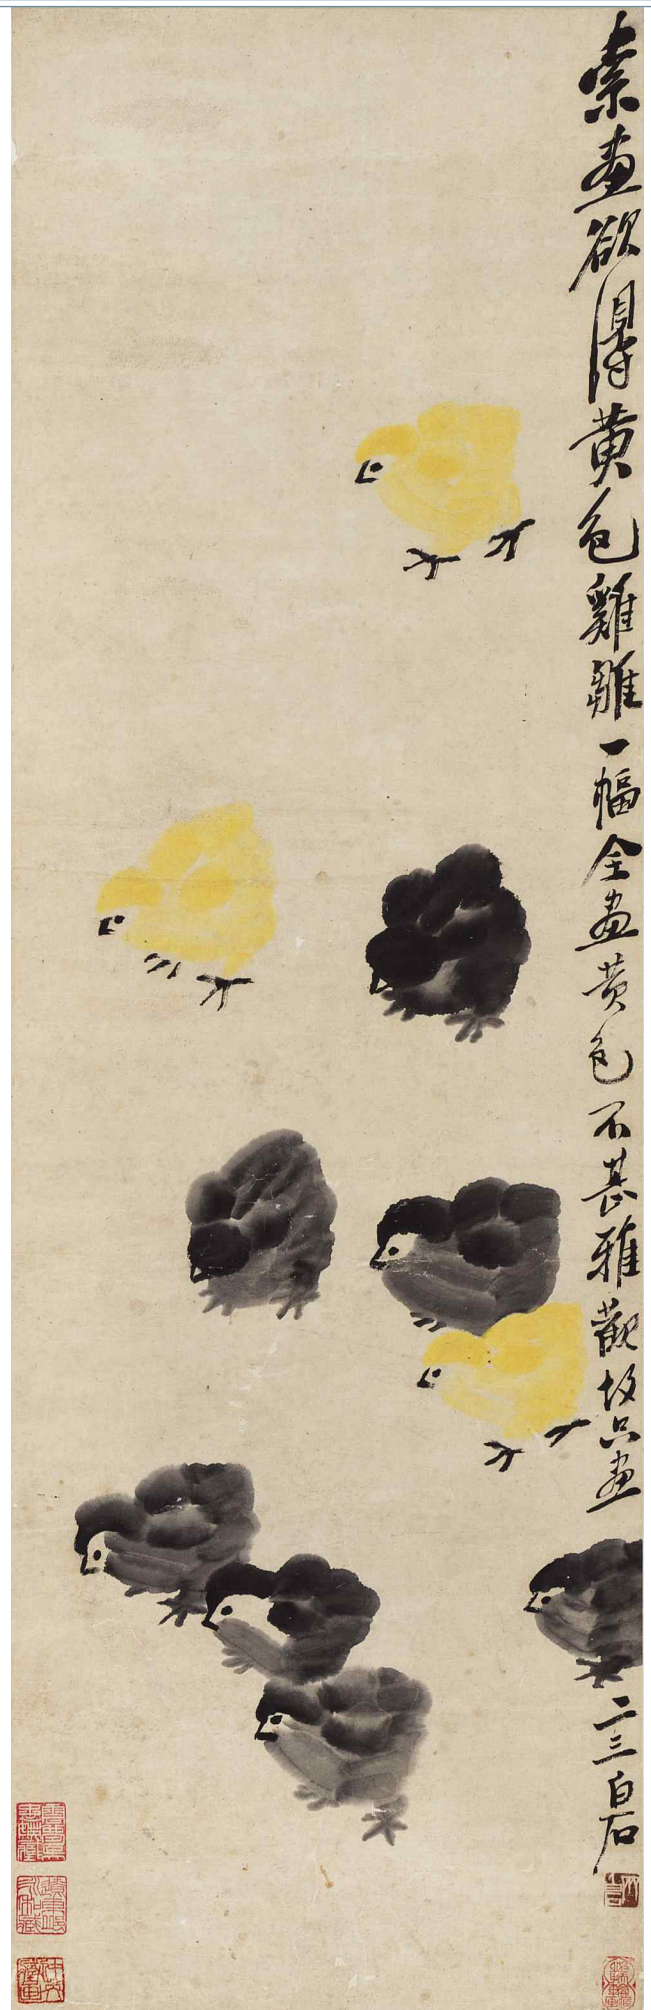 索畫欲得黃色雞雛一幅全畫黃色不甚雅觀故只畫
二三白石